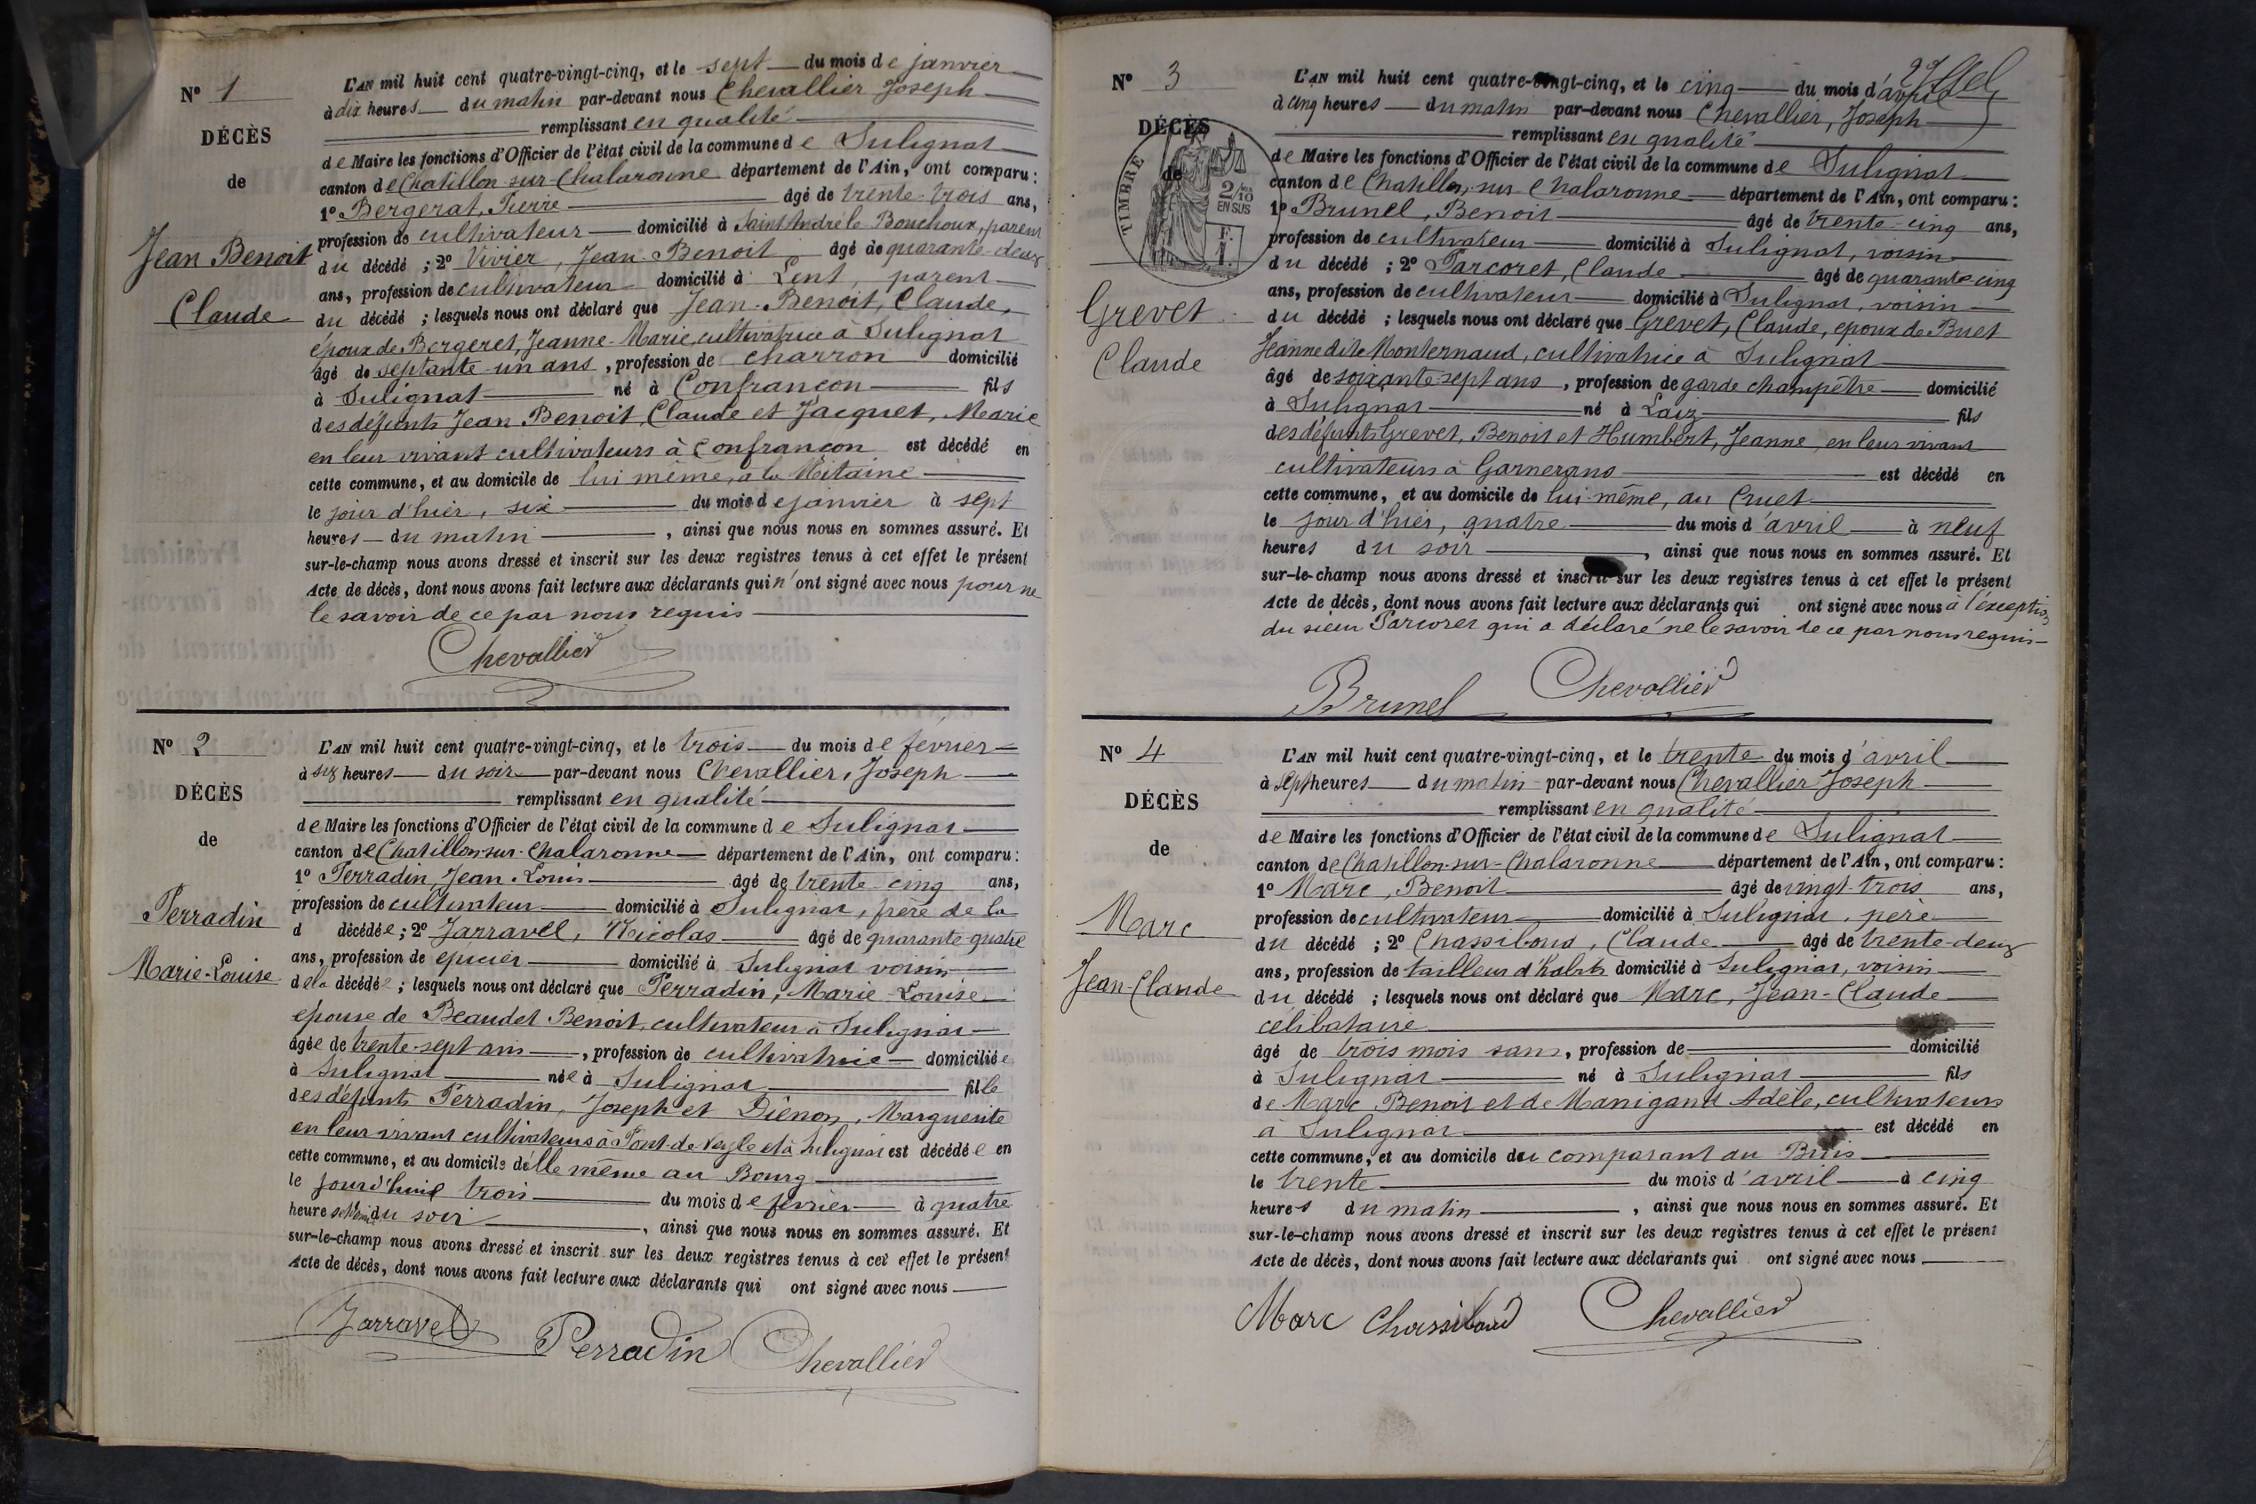 N° 1
DÉCÈS
de
Jean Benoit
Claude
L'AN mil huit cent quatre-vingt-cinq, et le sept du mois de janvier
à dix heures du matin par-devant nous Chevallier Joseph
remplissant en qualité
de Maire les fonctions d'Officier de l'état civil de la commune de Sulignat
canton de Chatillon-sur-Chalaronne département de l'Ain, ont comparu :
1° Bergerat, Pierre âgé de trente-trois ans,
profession de cultivateur domicilié à Saint André le Bouchoux, parent
du décédé ; 2° Vivier, Jean-Benoit âgé de quarante-deux
ans, profession de cultivateur domicilié à Lent, parent
du décédé ; lesquels nous ont déclaré que Jean-Benoit, Claude,
époux de Bergeret, Jeanne-Marie, cultivatrice à Sulignat
âgé de septante-un ans, profession de charron domicilié
à Sulignat né à Confrançon fils
des défunts Jean Benoit, Claude et Jacquet, Marie
en leur vivant cultivateurs à Confrançon est décédé en
cette commune, et au domicile de lui même, à la Mitaine
le jour d'hier, six du mois de janvier à sept
heures du matin, ainsi que nous nous en sommes assuré. Et
sur-le-champ nous avons dressé et inscrit sur les deux registres tenus à cet effet le présent
Acte de décès, dont nous avons fait lecture aux déclarants qui n'ont signé avec nous pour ne
le savoir de ce par nous requis
Chevallier
N° 2
DÉCÈS
de
Perradin
Marie-Louise
L'AN mil huit cent quatre-vingt-cinq, et le trois du mois de février
à six heures du soir par-devant nous Chevallier, Joseph
remplissant en qualité
de Maire les fonctions d'Officier de l'état civil de la commune de Sulignat
canton de Chatillon-sur-Chalaronne département de l'Ain, ont comparu :
1° Perradin, Jean-Louis âgé de trente-cinq ans,
profession de cultivateur domicilié à Sulignat, frère de la
d décédée ; 2° Jarravel, Nicolas âgé de quarante-quatre
ans, profession de épicier domicilié à Sulignat voisin
de la décédée ; lesquels nous ont déclaré que Perradin, Marie-Louise
épouse de Beaudet Benoit, cultivateur à Sulignat
âgée de trente-sept ans, profession de cultivatrice domiciliée
à Sulignat née à Sulignat fille
des défunts Perradin, Joseph et Diénon, Marguerite
en leur vivant cultivateurs à Pont-de-Veyle et à Sulignat est décédée en
cette commune, et au domicile d'elle même au Bourg
le jourd'hui trois du mois de février à quatre
heures du soir, ainsi que nous nous en sommes assuré. Et
sur-le-champ nous avons dressé et inscrit sur les deux registres tenus à cet effet le présent
Acte de décès, dont nous avons fait lecture aux déclarants qui ont signé avec nous
Jarravel Perradin Chevallier
N° 3
DÉCÈS
de
TIMBRE
2/10 EN SUS
Grevet
Claude
L'AN mil huit cent quatre-vingt-cinq, et le cinq du mois d'avril
à cinq heures du matin par-devant nous Chevallier, Joseph
remplissant en qualité
de Maire les fonctions d'Officier de l'état civil de la commune de Sulignat
canton de Chatillon-sur-Chalaronne département de l'Ain, ont comparu :
1° Brunel, Benoit âgé de trente-cinq ans,
profession de cultivateur domicilié à Sulignat, voisin
du décédé ; 2° Parcoret, Claude âgé de quarante-cinq
ans, profession de cultivateur domicilié à Sulignat, voisin
du décédé ; lesquels nous ont déclaré que Grevet, Claude, époux de Buet
Jeanne dite Monternaud, cultivatrice à Sulignat
âgé de soixante-sept ans, profession de garde champêtre domicilié
à Sulignat né à Laiz fils
des défunts Grevet, Benoit et Humbert, Jeanne, en leur vivant
cultivateurs à Garnerans est décédé en
cette commune, et au domicile de lui-même, au Cruet
le jour d'hier, quatre du mois d'avril à neuf
heures du soir, ainsi que nous nous en sommes assuré. Et
sur-le-champ nous avons dressé et inscrit sur les deux registres tenus à cet effet le présent
Acte de décès, dont nous avons fait lecture aux déclarants qui ont signé avec nous à l'exception
du sieur Parcoret qui a déclaré ne le savoir de ce par nous requis
Brunel Chevallier
N° 4
DÉCÈS
de
Marc
Jean-Claude
L'AN mil huit cent quatre-vingt-cinq, et le trente du mois d'avril
à sept heures du matin par-devant nous Chevallier Joseph
remplissant en qualité
de Maire les fonctions d'Officier de l'état civil de la commune de Sulignat
canton de Chatillon-sur-Chalaronne département de l'Ain, ont comparu :
1° Marc, Benoit âgé de vingt-trois ans,
profession de cultivateur domicilié à Sulignat, père
du décédé ; 2° Chassiboud, Claude âgé de trente-deux
ans, profession de tailleur d'habits domicilié à Sulignat, voisin
du décédé ; lesquels nous ont déclaré que Marc, Jean-Claude
célibataire
âgé de trois mois sans, profession de domicilié
à Sulignat né à Sulignat fils
de Marc Benoit et de Manigand Adèle, cultivateurs
à Sulignat est décédé en
cette commune, et au domicile du comparant au Buis
le trente du mois d'avril à cinq
heures du matin, ainsi que nous nous en sommes assuré. Et
sur-le-champ nous avons dressé et inscrit sur les deux registres tenus à cet effet le présent
Acte de décès, dont nous avons fait lecture aux déclarants qui ont signé avec nous
Marc Chassiboud Chevallier